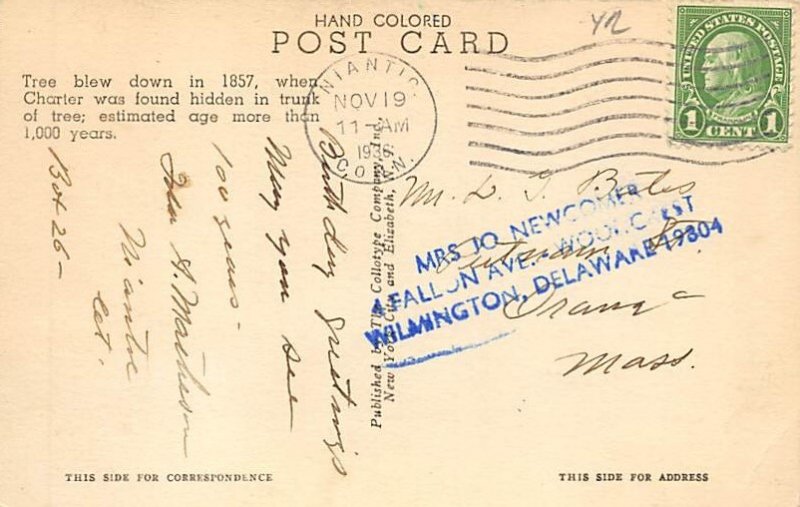 HAND COLORED
POST CARD
Tree blew down in 1857, when
Charter was found hidden in trunk
of tree; estimated age more than
1,000 years.
NIANTIC
NOV 19
11-AM
1936
CONN.
UNITED STATES POSTAGE
FRANKLIN
1 CENT 1
Birthday greetings
May you see
100 years-
Ida A. Matheson
Niantic
Ct.
Box 26-
Published by The Collotype Company, Inc.,
New York City and Elizabeth, N.
Mr. L. J. Bates
Putnam St.
Orange
Mass.
MRS JO NEWCOMER
4 FALLON AVE. WOODCREST
WILMINGTON, DELAWARE 19804
THIS SIDE FOR CORRESPONDENCE
THIS SIDE FOR ADDRESS